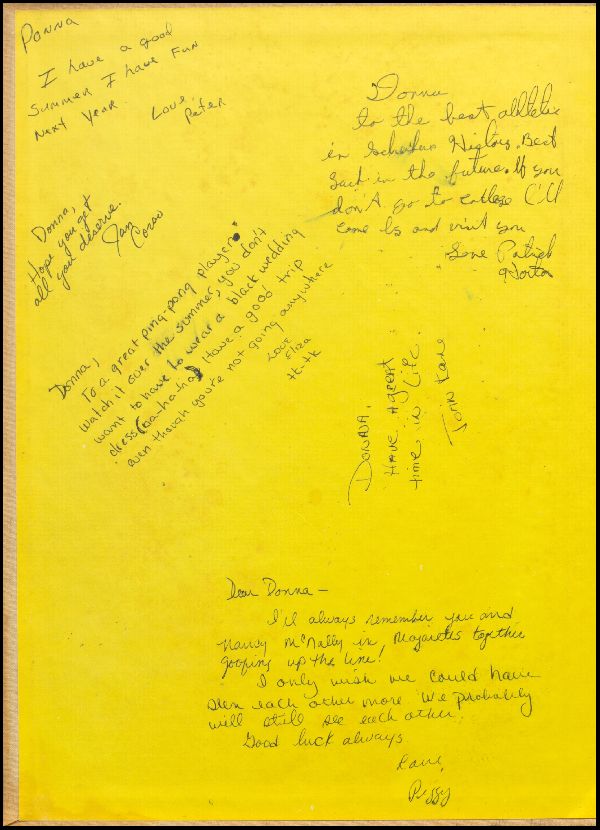 Donna
I have a good
Summer I have Fun
Next Year.
Love,
Peter
Donna
to the best athlete
in History. Best
Luck in the future. If you
don't go to college I'll
come by and visit you
Love Patrick
Horton
Donna,
Hope you get
all you deserve.
Jan
Corso
Donna,
To a great ping-pong player.
Watch it over the summer, you don't
want to have to wear a black wedding
dress (ha-ha-ha) Have a good trip
even though you're not going anywhere
Love
Eliza
tk-tk
DONNA,
HAVE AGREAT
time in Life.
John Kane
Dear Donna—
I'll always remember you and
Nancy McNally in Majorettes together
goofing up the line!
I only wish we could have
seen each other more. We probably
will still see each other.
Good luck always
Love,
Peggy